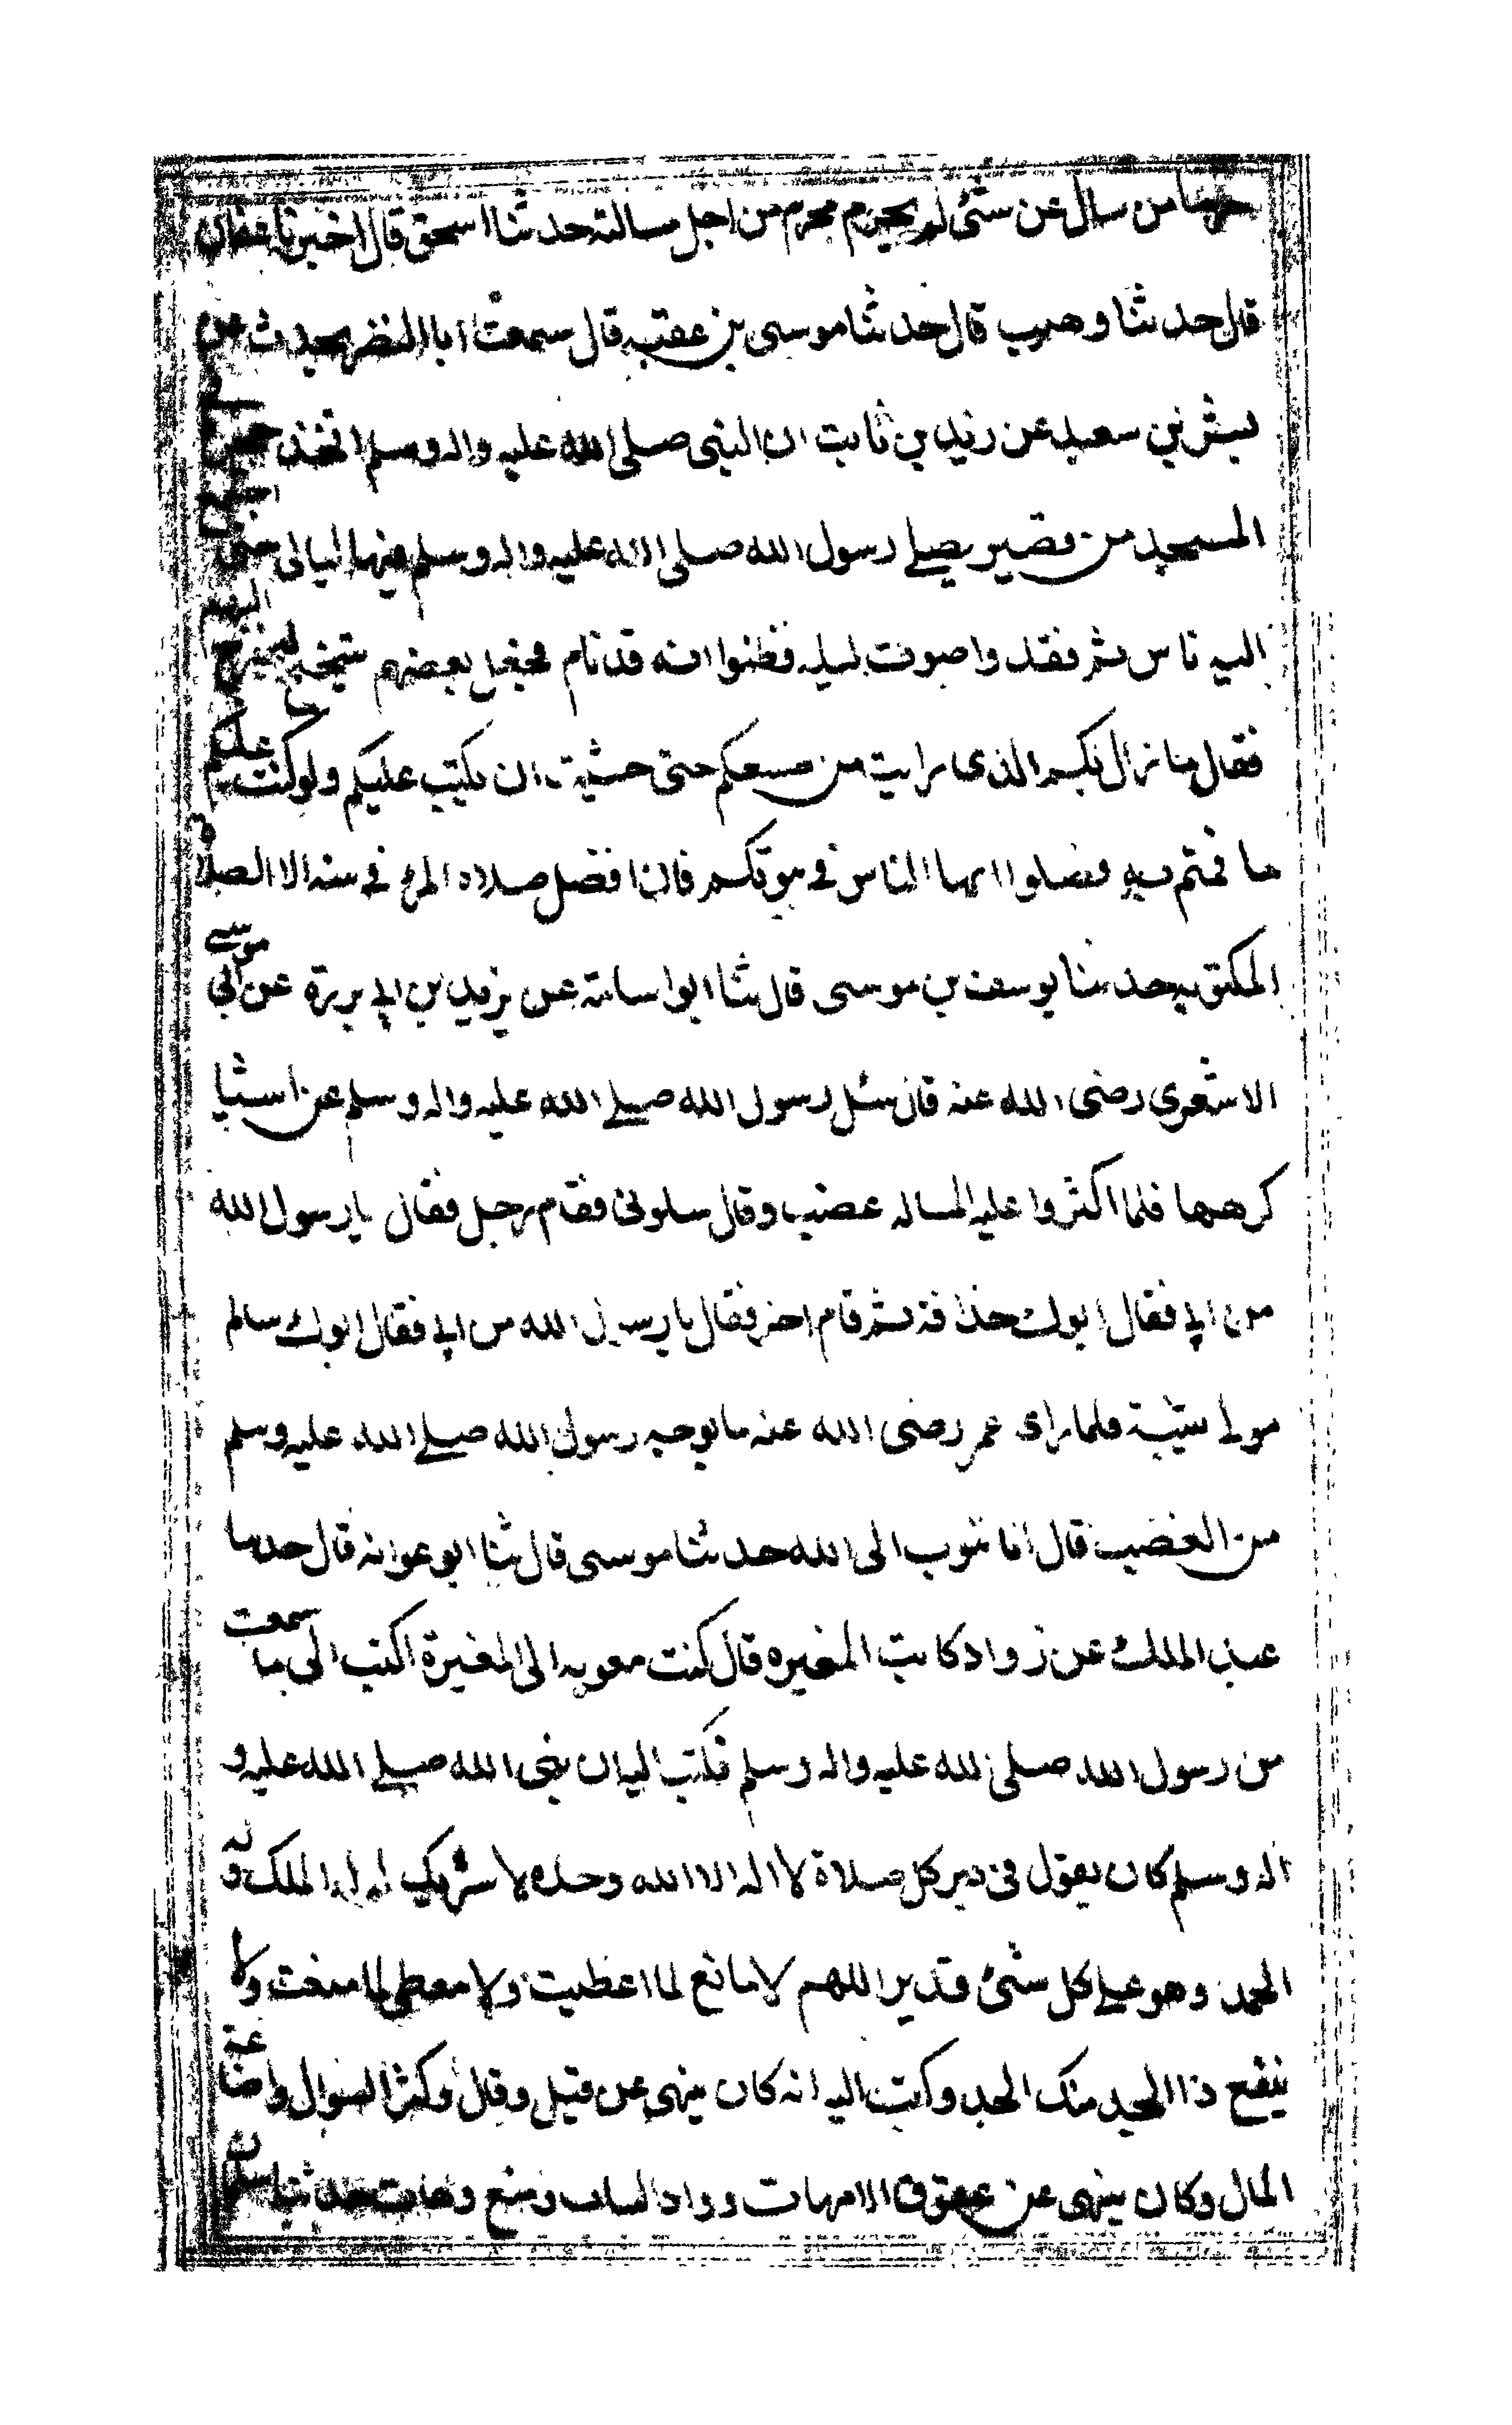 جرما من سال عن شئ لم يحرم محرم من اجل مسالته حدثنا اسحق قال اخبرنا عفان
قال حدثنا وهيب قال حدثنا موسى بن عقبه قال سمعت ابا النضر يحدث عن
بشر بن سعيد عن زيد بن ثابت ان النبى صلى الله عليه واله وسلم اتخذ حجرة فى
المسجد من قصير يصلے رسول الله صلى الله عليه واله وسلم فيها ليالى حتى اجتمع
اليه ناس ثم فقدوا صوت ليله فظنوا انه قد نام فجعل بعضهم يتنحنح ليخرج اليهم
فقال ما زال بكم الذى رايت من صنعكم حتى خشيت ان يكتب عليكم ولو كتب عليكم
ما قمتم به فصلوا ايها الناس فى بيوتكم فان افضل صلاه المرء فى بيته الا الصلاة
المكتوبه حدثنا يوسف بن موسى قال ثنا ابو اسامة عن بريد بن ابى بردة عن ابى موسے
الاشعرى رضى الله عنه قال سئل رسول الله صلے الله عليه واله وسلم عن اشيا
كرهها فلما اكثروا عليه المساله غضب وقال سلونى فقام رجل فقال يا رسول الله
من ابى فقال ابوك حذافه ثم قام اخر فقال يا رسول الله من ابى فقال ابوك سالم
مولى شيبة فلما راى عمر رضى الله عنه ما بوجه رسول الله صلے الله عليه وسلم
من الغضب قال انا نتوب الى الله حدثنا موسى قال ثنا ابو عوانه قال حدثنا
عبد الملك عن زواد كاتب المغيره قال كتب معويه الى المغيرة اكتب الى ما سمعت
من رسول الله صلى الله عليه واله وسلم فكتب اليه ان نبى الله صلے الله عليه و
اله وسلم كان يقول فى دبر كل صلاة لا اله الا الله وحده لا شريك له له الملك وله
الحمد وهو على كل شئ قدير اللهم لا مانع لما اعطيت ولا معطى لما منعت ولا
ينفع ذا الجد منك الجد وكتب اليه انه كان ينهى عن قيل وقال وكثرة السوال واضاعة
المال وكان ينهى عن عقوق الامهات وواد البنات ومنع وهات حدثنا سليمان